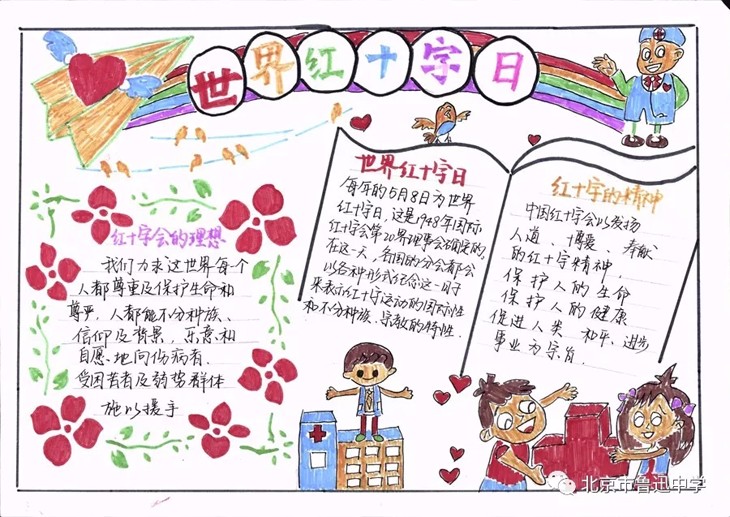 世界红十字日
红十字会的理想
我们力求这世界每个
人都尊重及保护生命和
尊严,人都能不分种族、
信仰及背景,乐意和
自愿地向伤病者、
受困苦者及弱势群体
施以援手
世界红十字日
每年的5月8日为世界
红十字日,这是1948年国际
红十字会第20界理事会确定的,
在这一天,各国的分会都会
以各种形式纪念这一日子
来表示红十字运动的国际性
和不分种族、宗教的特性.
红十字的精神
中国红十字会以发扬
人道、博爱、奉献
的红十字精神,
保护人的生命
保护人的健康
促进人类和平、进步
事业为宗旨.
北京市鲁迅中学